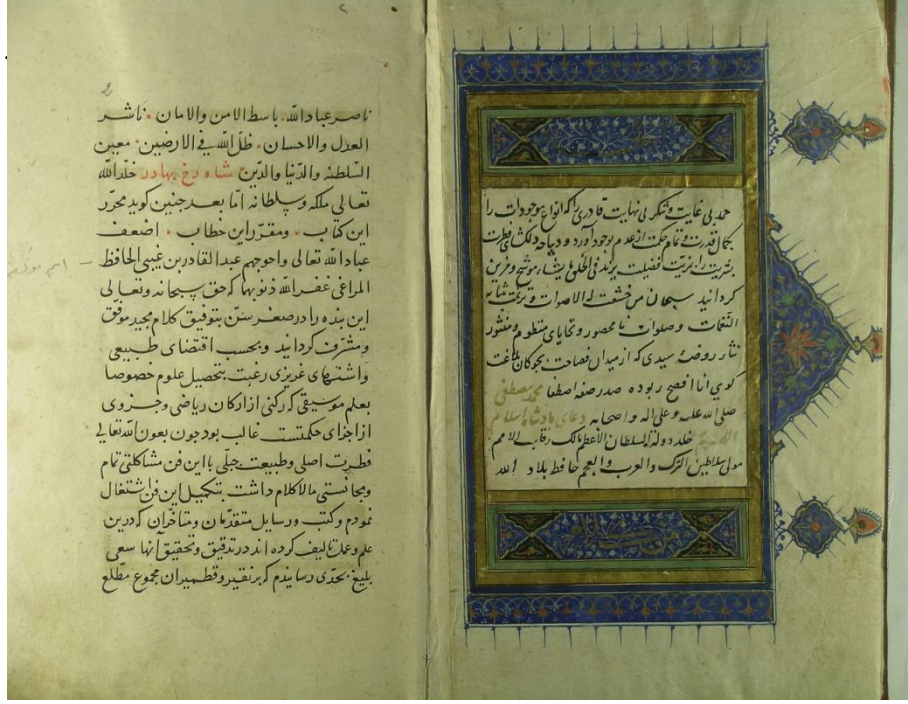 حمد بی غایت و شکر بی نهایت قادری را که انواع موجودات را
بکمال قدرت و تمام حکمت از عدم بوجود آورد و دیباجه فطرت
بشریت را بزینت فضیلت یزید فی الخلق ما یشاء موشح و مزین
کردانید سبحان من خشعت له الاصوات و
النغمات و صلوات نا محصور و تحایای منظوم و منثور
نثار روضه سیدی که از میدان فصاحت بجوکان بلاغت
کوی انا افصح ربوده صدر صفه اصطفا محمد مصطفی
صلی الله علیه و علی اله و اصحابه دعای بادشاه اسلام
خلد دولة السلطان الاعظم مالک رقاب الامم
مولی سلاطین الترک والعرب والعجم حافظ بلاد الله
2
ناصر عباد الله باسط الامن والامان ناشر
العدل والاحسان ظل الله فی الارضین معین
السلطنه والدنیا والدین شاه رخ بهادر خلد الله
تعالی ملکه وسلطانه اما بعد جنین کوید محرر
این کتاب ومقرر این خطاب اضعف
عباد الله تعالی واحوجهم عبد القادر بن غیبی الحافظ
المراغی غفر الله ذنوبهما که حق سبحانه وتعالی
این بنده را در صغر سن بتوفیق کلام مجید موفق
ومشرف کردانید وبحسب اقتضای طبیعی
واشتهای غریزی رغبت بتحصیل علوم خصوصا
بعلم موسیقی که رکنی از ارکان ریاضی وجزوی
از اجزای حکمتست غالب بود جون بعون الله تعالی
فطرت اصلی وطبیعت جبلی با این فن مشاکلتی تمام
ومجانستی مالاکلام داشت بتکمیل این فن اشتغال
نمودم وکتب ورسایل متقدمان ومتاخران که درین
علم وعمل تالیف کرده اند در تدقیق وتحقیق آنها سعی
بلیغ بحدی رسانیدم که بر نقیر وقطمیر آن مجموع مطلع